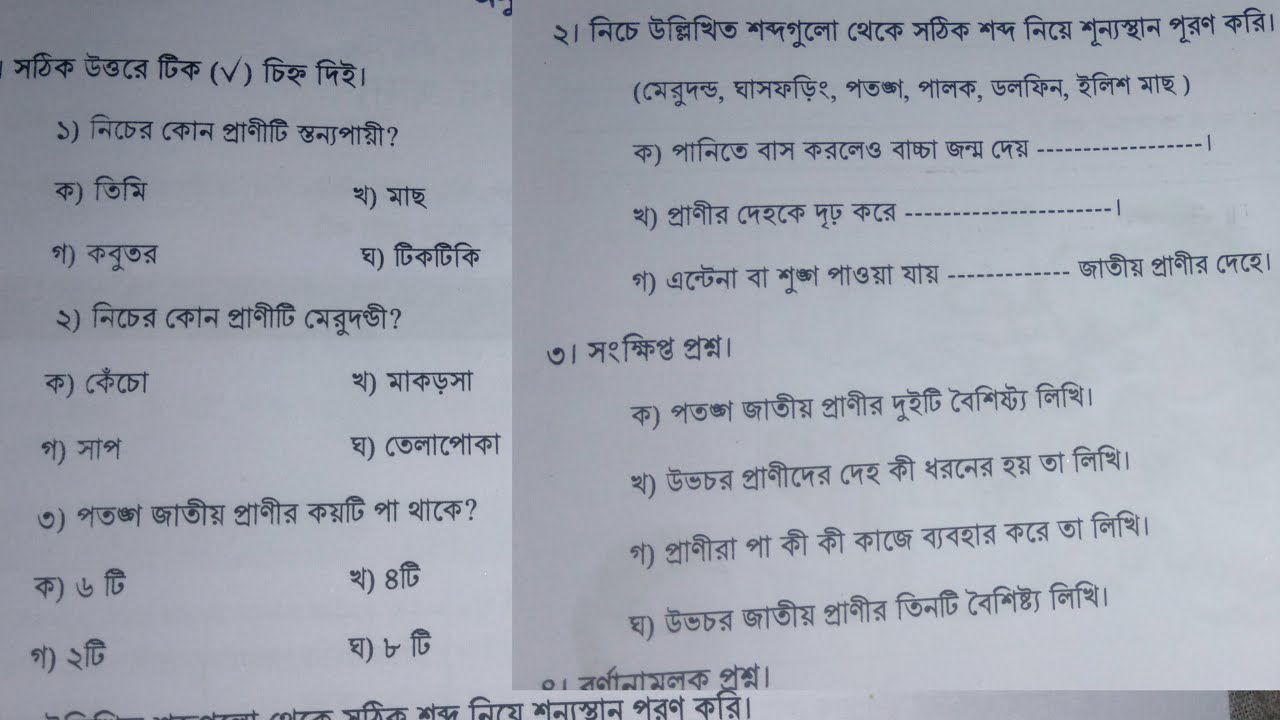 সঠিক উত্তরে টিক (√) চিহ্ন দিই।
১) নিচের কোন প্রাণীটি স্তন্যপায়ী?
ক) তিমি খ) মাছ
গ) কবুতর ঘ) টিকটিকি
২) নিচের কোন প্রাণীটি মেরুদণ্ডী?
ক) কেঁচো খ) মাকড়সা
গ) সাপ ঘ) তেলাপোকা
৩) পতঙ্গ জাতীয় প্রাণীর কয়টি পা থাকে?
ক) ৬ টি খ) ৪টি
গ) ২টি ঘ) ৮ টি
২। নিচে উল্লিখিত শব্দগুলো থেকে সঠিক শব্দ নিয়ে শূন্যস্থান পূরণ করি।
(মেরুদন্ড, ঘাসফড়িং, পতঙ্গ, পালক, ডলফিন, ইলিশ মাছ )
ক) পানিতে বাস করলেও বাচ্চা জন্ম দেয় -----------------।
খ) প্রাণীর দেহকে দৃঢ় করে ---------------------।
গ) এন্টেনা বা শূঙ্গ পাওয়া যায় ------------- জাতীয় প্রাণীর দেহে।
৩। সংক্ষিপ্ত প্রশ্ন।
ক) পতঙ্গ জাতীয় প্রাণীর দুইটি বৈশিষ্ট্য লিখি।
খ) উভচর প্রাণীদের দেহ কী ধরনের হয় তা লিখি।
গ) প্রাণীরা পা কী কী কাজে ব্যবহার করে তা লিখি।
ঘ) উভচর জাতীয় প্রাণীর তিনটি বৈশিষ্ট্য লিখি।
বর্ণনামূলক প্রশ্ন।
থেকে সঠিক শব্দ নিয়ে শূন্যস্থান পূরণ করি।